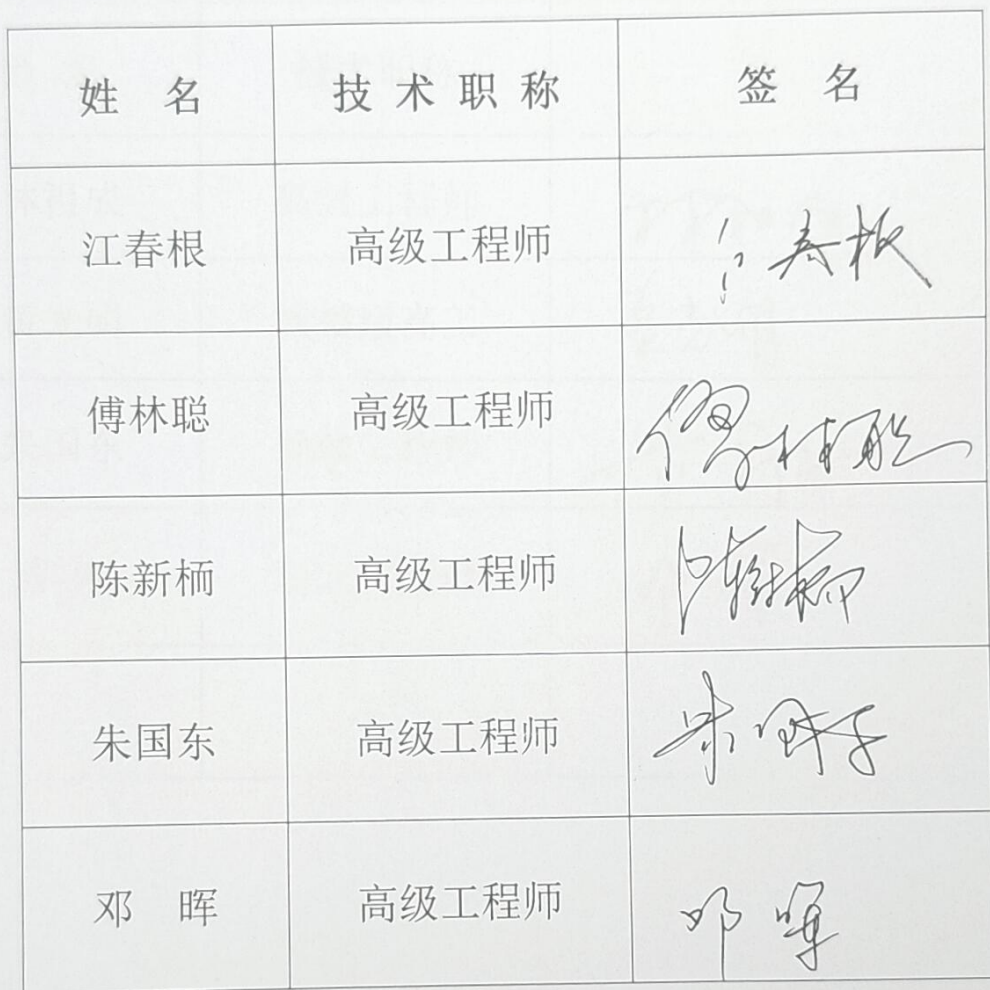 姓 名 技术职称 签 名
江春根 高级工程师 江春根
傅林聪 高级工程师 傅林聪
陈新栭 高级工程师 陈新栭
朱国东 高级工程师 朱国东
邓 晖 高级工程师 邓晖